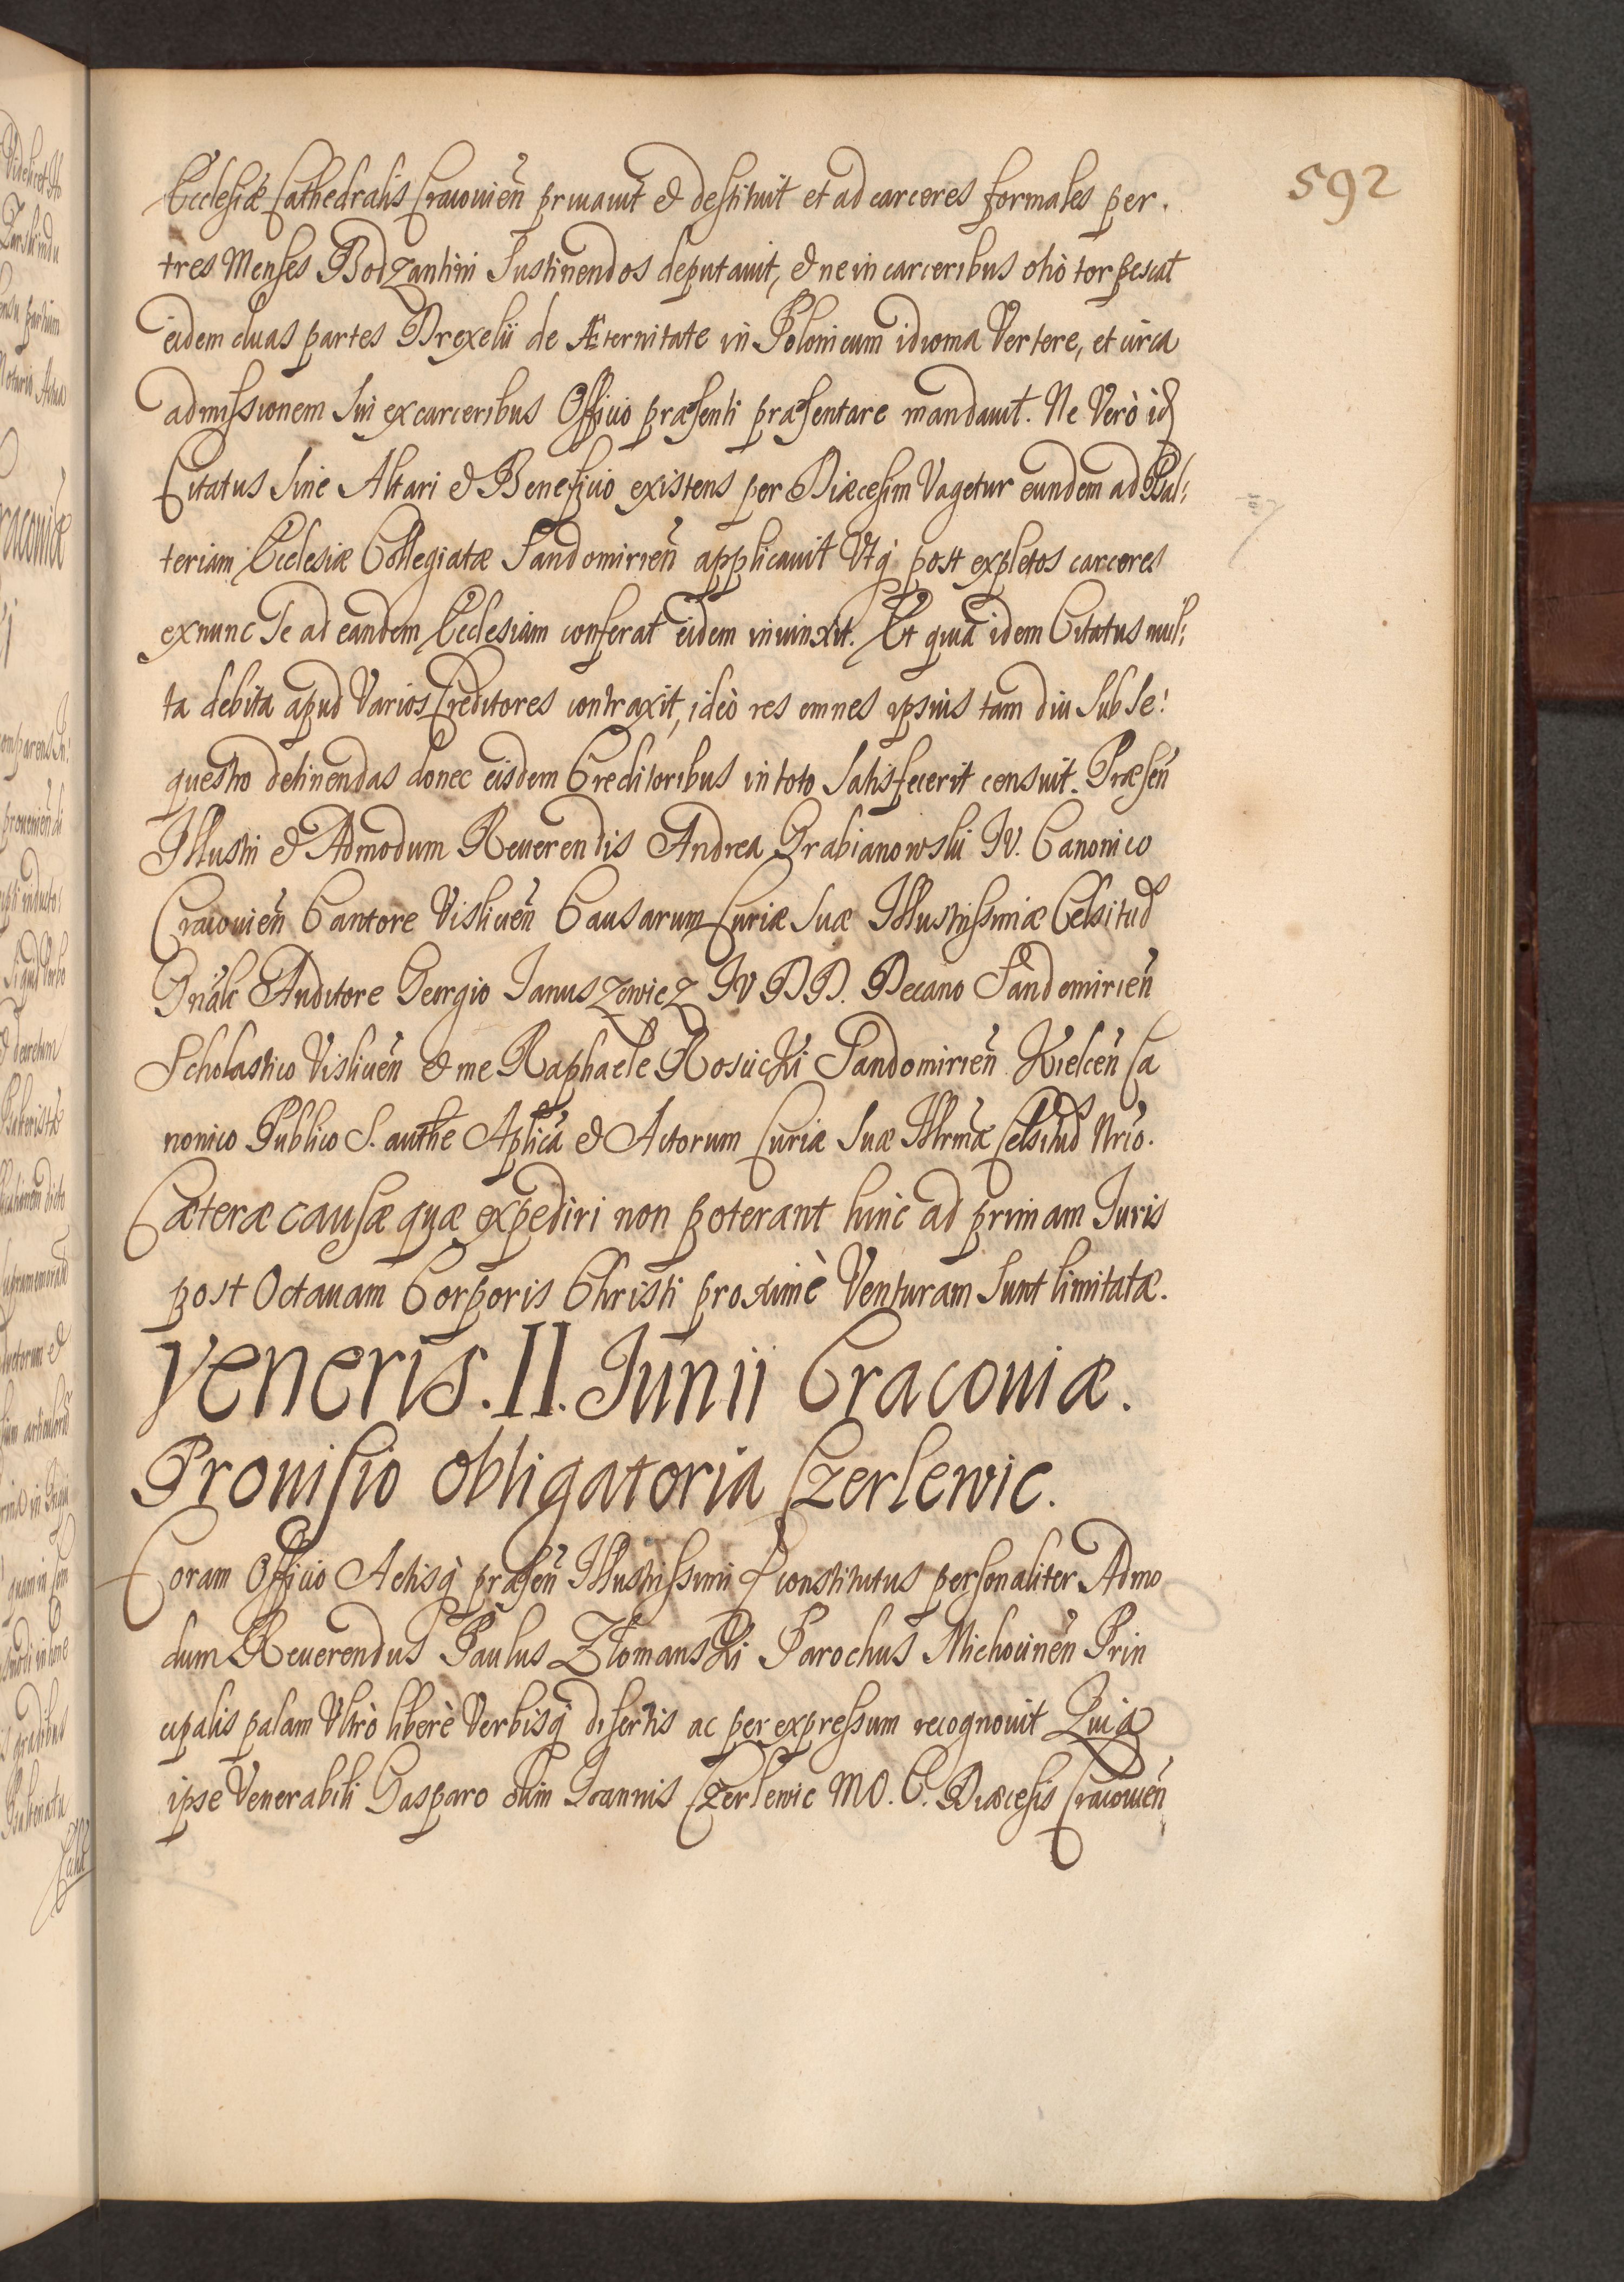 592
Ecclesiæ Cathedralis Cracouien̄ priuauit & destituit et ad carceres formales per.
tres Menses Bodzantini Sustinendos deputauit, & ne in carceribus otiò torpescat
eidem duas partes Drexelii de Æternitate in Polonicum idioma Vertere, et circa
admissionem Sui ex carceribus Officio præsenti præsentare mandauit. Ne Verò id
Citatus Sine Altari & Beneficio existens per Diæcesim Vagetur eundem ad Psal:
teriam Ecclesiæ Collegiatæ Sandomirien̄ applicauit Vtq́ post expletos carceres
exnunc Se ad eandem Ecclesiam conferat eidem iniunxit. Et quia idem Citatus mul:
ta debita apud Varios Creditores contraxit, ideò res omnes ipsius tam diu Sub Se:
questro detinendas donec eisdem Creditoribus in toto Satisfecerit censuit. Præsen̄
Illustri & Admodum Reuerendis Andrea Grabianowski IV. Canonico
Cracouien̄ Cantore Visliuen̄ Causarum Curiæ Suæ Illustrissimæ Celsitud
Gn̄ali Auditore Georgio Januszewicz IV DD. Decano Sandomirien̄
Scholastico Visliuen̄ & me Raphaele Rosicki Sandomirien̄ Kielcen̄ Ca
nonico Publico S. authe Aplicā & Actorum Curiæ Suæ Illrmæ Celsitud Nrīo.
Cæteræ causæ quæ expediri non poterant hinc ad primam Iuris
post Octauam Corporis Christi proximè Venturam Sunt limitatæ.
Veneris. II. Junii Cracouiæ.
Prouisio obligatoria Czerlewic.
Coram Officio Actisq́ præsen̄ Illustrissimi & constitutus personaliter Admo
dum Reuerendus Paulus Zlomanski Parochus Michocinen̄ Prin
cipalis palam Vltrò liberè Verbisq́ disertis ac per expressum recognouit Quia
ipse Venerabili Gasparo olim Joannis Czerlewic M O. C. Diæcesis Cracouien̄